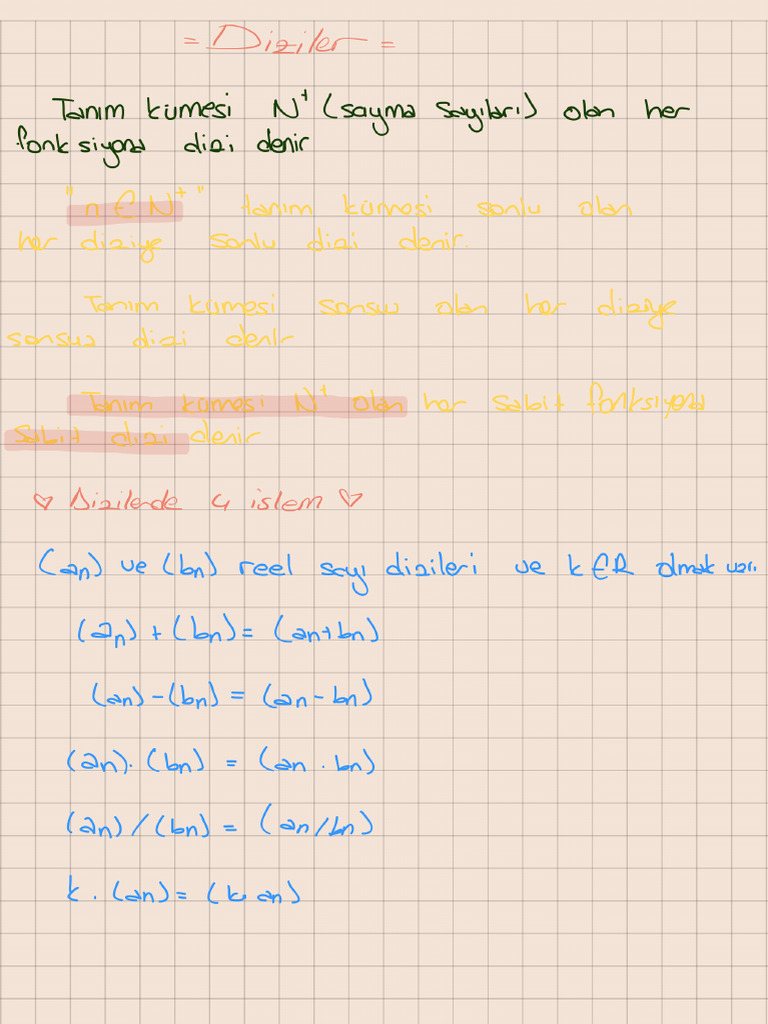 = Diziler =
Tanım kümesi N⁺ (sayma sayıları) olan her
fonksiyona dizi denir
"n ∈ N⁺" tanım kümesi sonlu olan
her diziye sonlu dizi denir.
Tanım kümesi sonsuz olan her diziye
sonsuz dizi denir
Tanım kümesi N⁺ olan her sabit fonksiyona
sabit dizi denir
♡ Dizilerde 4 islem ♡
(aₙ) ve (bₙ) reel sayı dizileri ve k ∈ R olmak üzr.
(aₙ) + (bₙ) = (an+bn)
(aₙ) - (bₙ) = (an - bn)
(aₙ) . (bₙ) = (an . bn)
(aₙ) / (bₙ) = (an/bn)
k . (an) = (k. an)